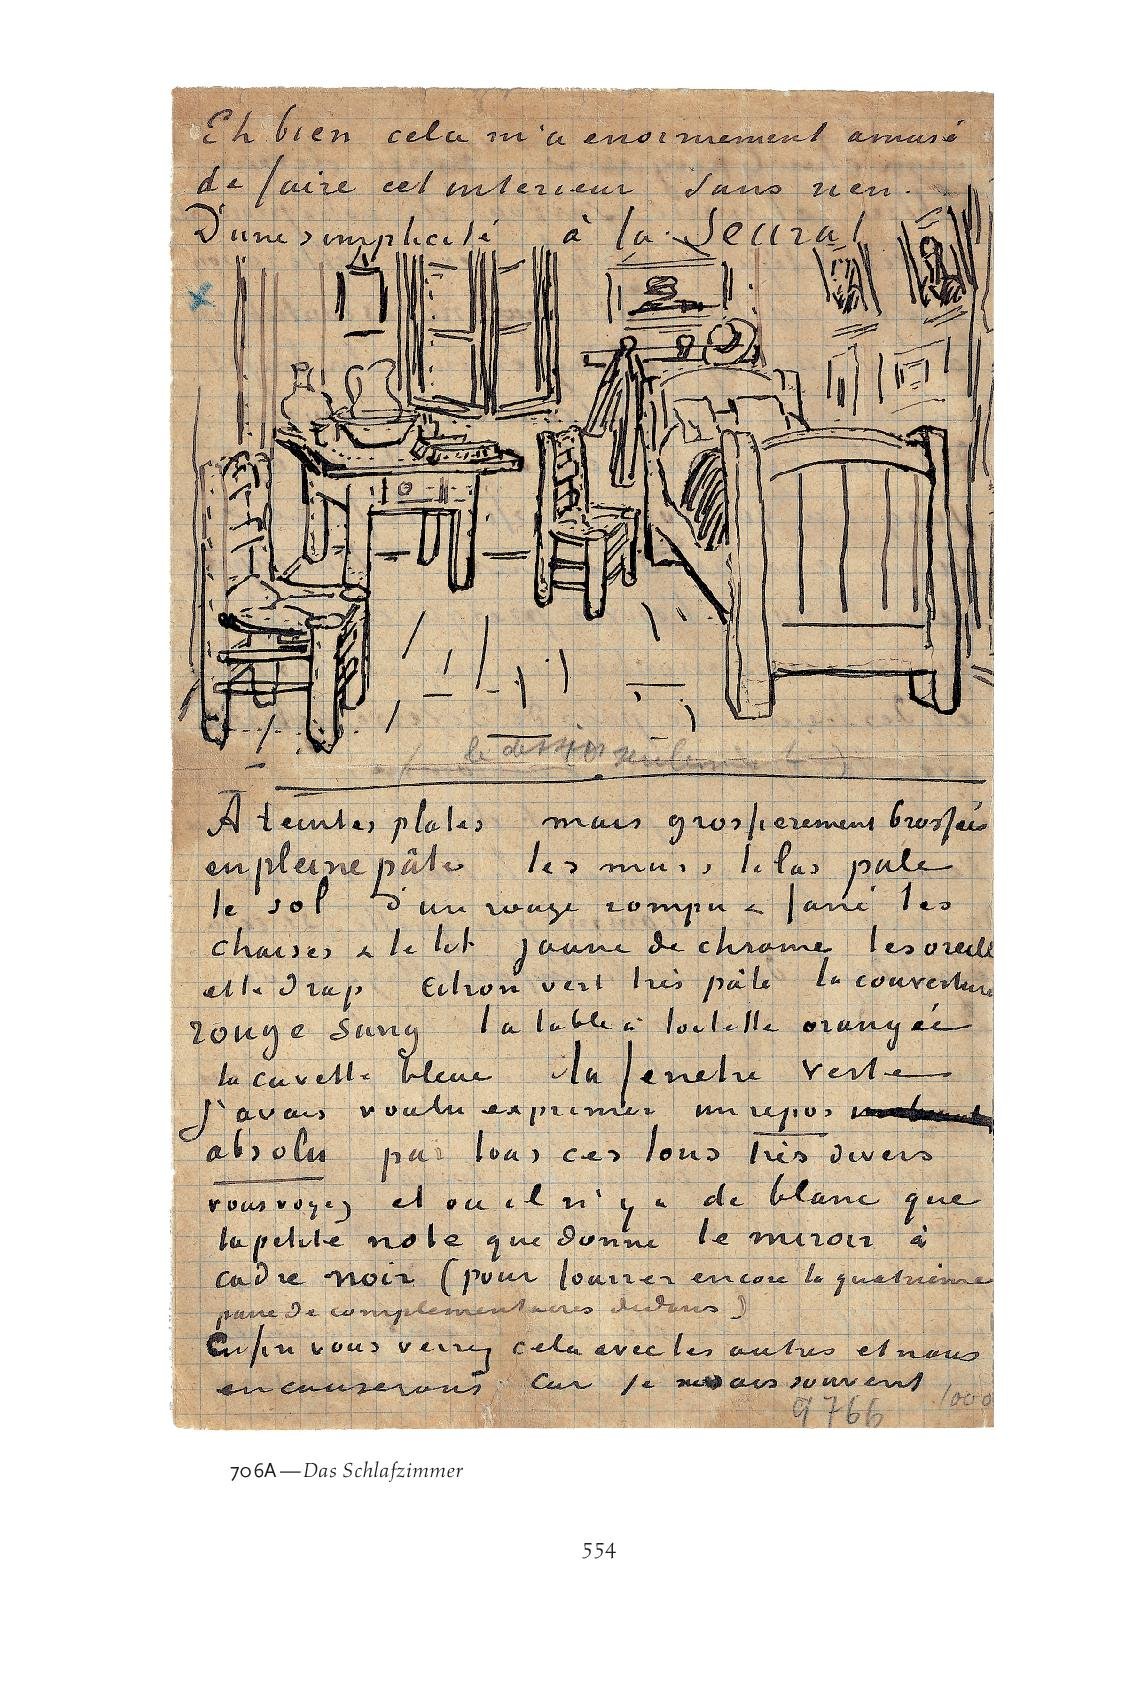 Eh bien cela m'a enormement amusé
de faire cet interieur sans rien.
D'une simplicité à la Seurat
(le dessin seulement)
A teintes plates mais grossierement brossées
en pleine pâte les murs lilas pale
le sol d'un rouge rompu & fané les
chaises & le lit jaune de chrome les oreill
et le drap citron vert très pâle la couverture
rouge sang la table à toilette orangée
la cuvette bleue la fenetre verte
J'avais voulu exprimer un repos
absolu par tous ces tons très divers
vous voyez et ou il n'y a de blanc que
la petite note que donne le miroir à
cadre noir (pour fourrer encore la quatrieme
paire de complementaires dedans)
Enfin vous verrez cela avec les autres et nous
en causerons car je ne sais souvent
9766 1000
706A—Das Schlafzimmer
554